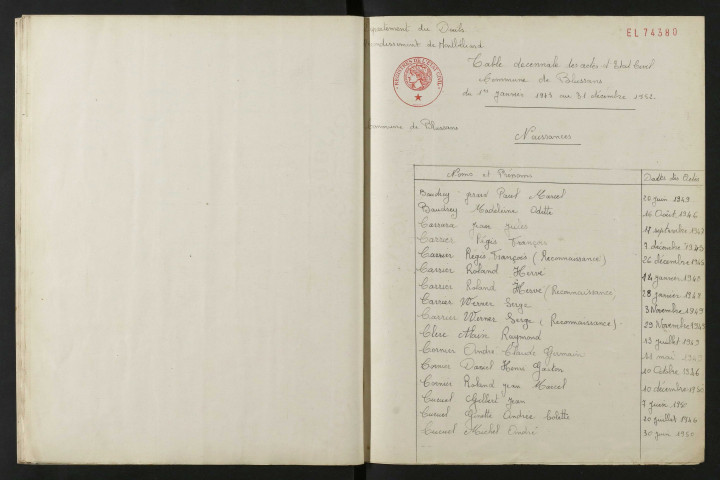 Département du Doubs
Arrondissement de Montbéliard
EL 74380
Table décennale des actes d'Etat Civil
Commune de Blussans
du 1er janvier 1943 au 31 décembre 1952
REGISTRES DE L'ETAT CIVIL
Commune de Blussans
Naissances
Noms et Prénoms Dates des Actes
Baudrey Marcel 20 juin 1949
Baudrey Madeleine Odette 16 Août 1946
Jules 17 septembre
Carrier Régis François 3 décembre 1945
Carrier Régis François (Reconnaissance) 26 décembre 1945
Carrier Roland Hervé 14 janvier 1948
Carrier Roland Hervé (Reconnaissance) 28 janvier 1948
Carrier Werner Serge 3 Novembre 1949
Carrier Werner Serge (Reconnaissance) 29 Novembre 1949
Clerc Alain Raymond 13 juillet 1949
Cornier André Claude Germain 21 mai 1943
Cornier Daniel Henri Gaston 10 Octobre 1946
Cornier Roland Jean Marcel 10 décembre 1950
Cucuel Gilbert Jean 7 juin 1950
Cucuel Ginette Andrée Colette 20 juillet 1946
Cucuel Michel André 30 juin 1950